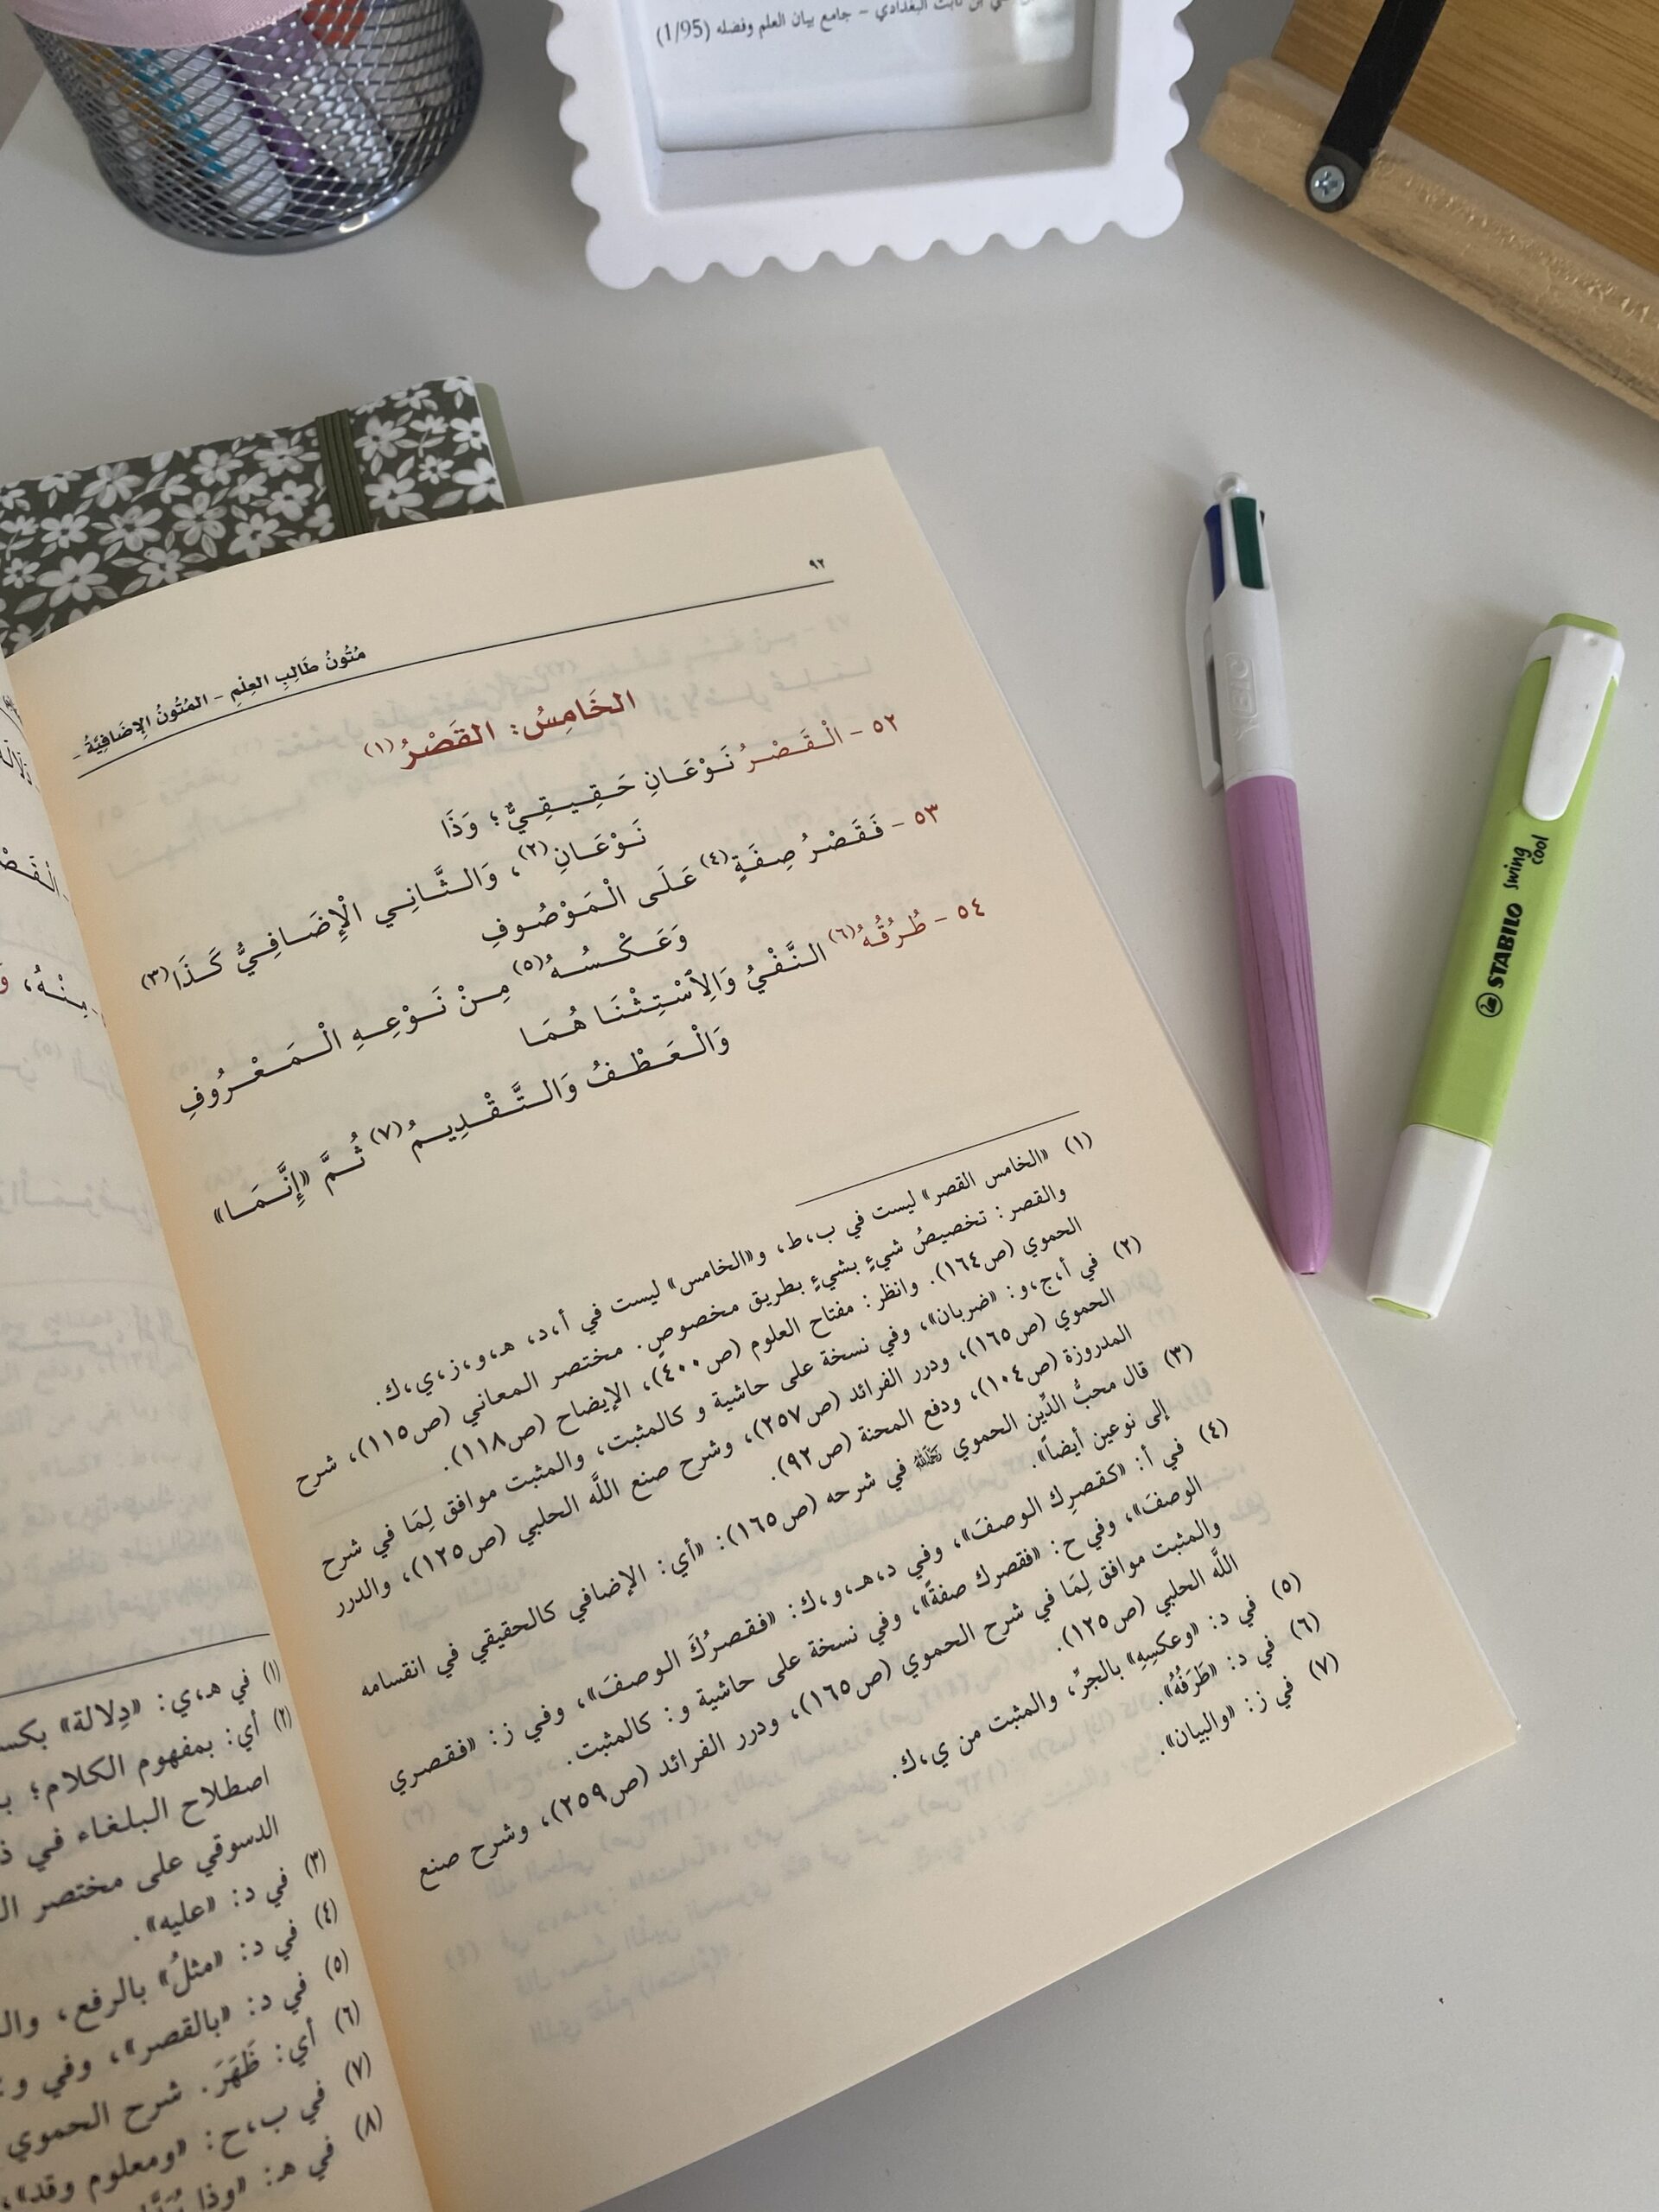 بن ثابت البغدادي – جامع بيان العلم وفضله (1/95)
٩٢
مُتُونُ طَالِبِ العِلْمِ – المُتُونُ الإِضَافِيَّةُ –
الخَامِسُ: القَصْرُ(١)
٥٢ – الْقَصْرُ نَوْعَانِ حَقِيقِيٌّ؛ وَذَا
نَوْعَانِ(٢)، وَالثَّانِي الْإِضَافِيُّ كَذَا(٣)
٥٣ – فَقَصْرُ صِفَةٍ(٤) عَلَى الْمَوْصُوفِ
وَعَكْسُهُ(٥) مِنْ نَوْعِهِ الْمَعْرُوفِ
٥٤ – طُرُقُهُ(٦) النَّفْيُ وَالِاسْتِثْنَا هُمَا
وَالْعَطْفُ وَالتَّقْدِيمُ(٧) ثُمَّ «إِنَّمَا»
(١) «الخامس القصر» ليست في ب،ط، و«الخامس» ليست في أ،د، هـ،و،ز،ي،ك.
والقصر: تخصيصُ شيءٍ بشيءٍ بطريق مخصوصٍ. مختصر المعاني (ص١١٥)، شرح
الحموي (ص١٦٤). وانظر: مفتاح العلوم (ص٤٠٠)، الإيضاح (ص١١٨).
(٢) في أ،ج،و: «ضربان»، وفي نسخة على حاشية و كالمثبت، والمثبت موافق لِمَا في شرح
الحموي (ص١٦٥)، ودرر الفرائد (ص٢٥٧)، وشرح صنع اللَّه الحلبي (ص١٢٥)، والدرر
المدروزة (ص١٠٤)، ودفع المحنة (ص٩٢).
(٣) قال محبُّ الدِّين الحموي رحمه الله في شرحه (ص١٦٥): «أي: الإضافي كالحقيقي في انقسامه
إلى نوعين أيضاً».
(٤) في أ: «كقصرِك الوصفَ»، وفي د،هـ،و،ك: «فقصرُكَ الوصفَ»، وفي ز: «فقصري
الوصفَ»، وفي ح: «فقصرك صفةً»، وفي نسخة على حاشية و: كالمثبت.
والمثبت موافق لِمَا في شرح الحموي (ص١٦٥)، ودرر الفرائد (ص٢٥٩)، وشرح صنع
اللَّه الحلبي (ص١٢٥).
(٥) في د: «وعكسِهِ» بالجرِّ، والمثبت من ي،ك.
(٦) في د: «طَرَفُهُ».
(٧) في ز: «والبيان».
(١) في هـ،ي: «دِلالة» بكسر
(٢) أي: بمفهوم الكلام؛
اصطلاح البلغاء في
الدسوقي على مختصر
(٣) في د: «عليه».
(٤) في د: «مثلُ» بالرفع،
(٥) في د: «بالقصر»، وفي و:
(٦) أي: ظَهَرَ. شرح الحموي
(٧) في ب،ح: «ومعلوم وقد»،
(٨) في هـ: «وذا
BIC
STABILO swing cool